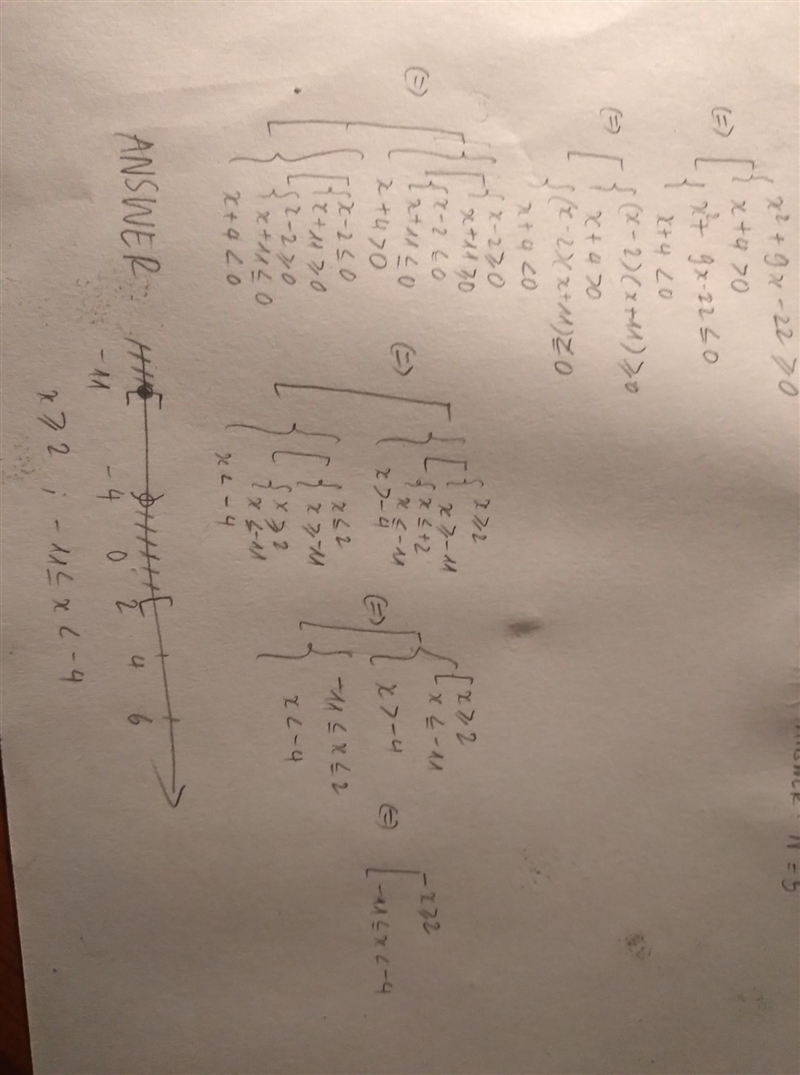 ANSWER: N = 5
x² + 9x - 22 ⩾ 0
(=) x + 4 > 0
x² + 9x - 22 ≤ 0
x + 4 < 0
(=) (x - 2)(x + 11) ⩾ 0
x + 4 > 0
(x - 2)(x + 11) ≤ 0
x + 4 < 0
x - 2 ⩾ 0
x + 11 ⩾ 0
x - 2 ≤ 0
x + 11 ≤ 0
(=) x + 4 > 0
x - 2 ≤ 0
x + 11 ⩾ 0
x - 2 ⩾ 0
x + 11 ≤ 0
x + 4 < 0
x ⩾ 2
x ⩾ -11
x ≤ +2
x ≤ -11
(=) x > -4
x ≤ 2
x ⩾ -11
x ⩾ 2
x ≤ -11
x < -4
x ⩾ 2
x ≤ -11
(=) x > -4
-11 ≤ x ≤ 2
x < -4
x ⩾ 2
(=) -11 ≤ x < -4
ANSWER
-11 -4 0 2 4 6
x ⩾ 2 ; -11 ≤ x < -4